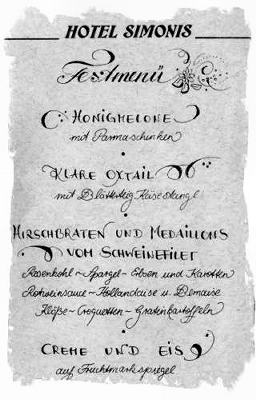 HOTEL SIMONIS
Festmenü
HONIGMELONE
mit Parmaschinken
KLARE OXTAIL
mit Blätterteig Käsestangl
HIRSCHBRATEN UND MEDAILLONS
VOM SCHWEINEFILET
Rosenkohl ~ Spargel ~ Erbsen und Karotten
Rotweinsauce ~ Hollandaise u. Bernaise
Klöße ~ Croquetten ~ Gratinkartoffeln
CREME UND EIS
auf Fruchtmarkspiegel